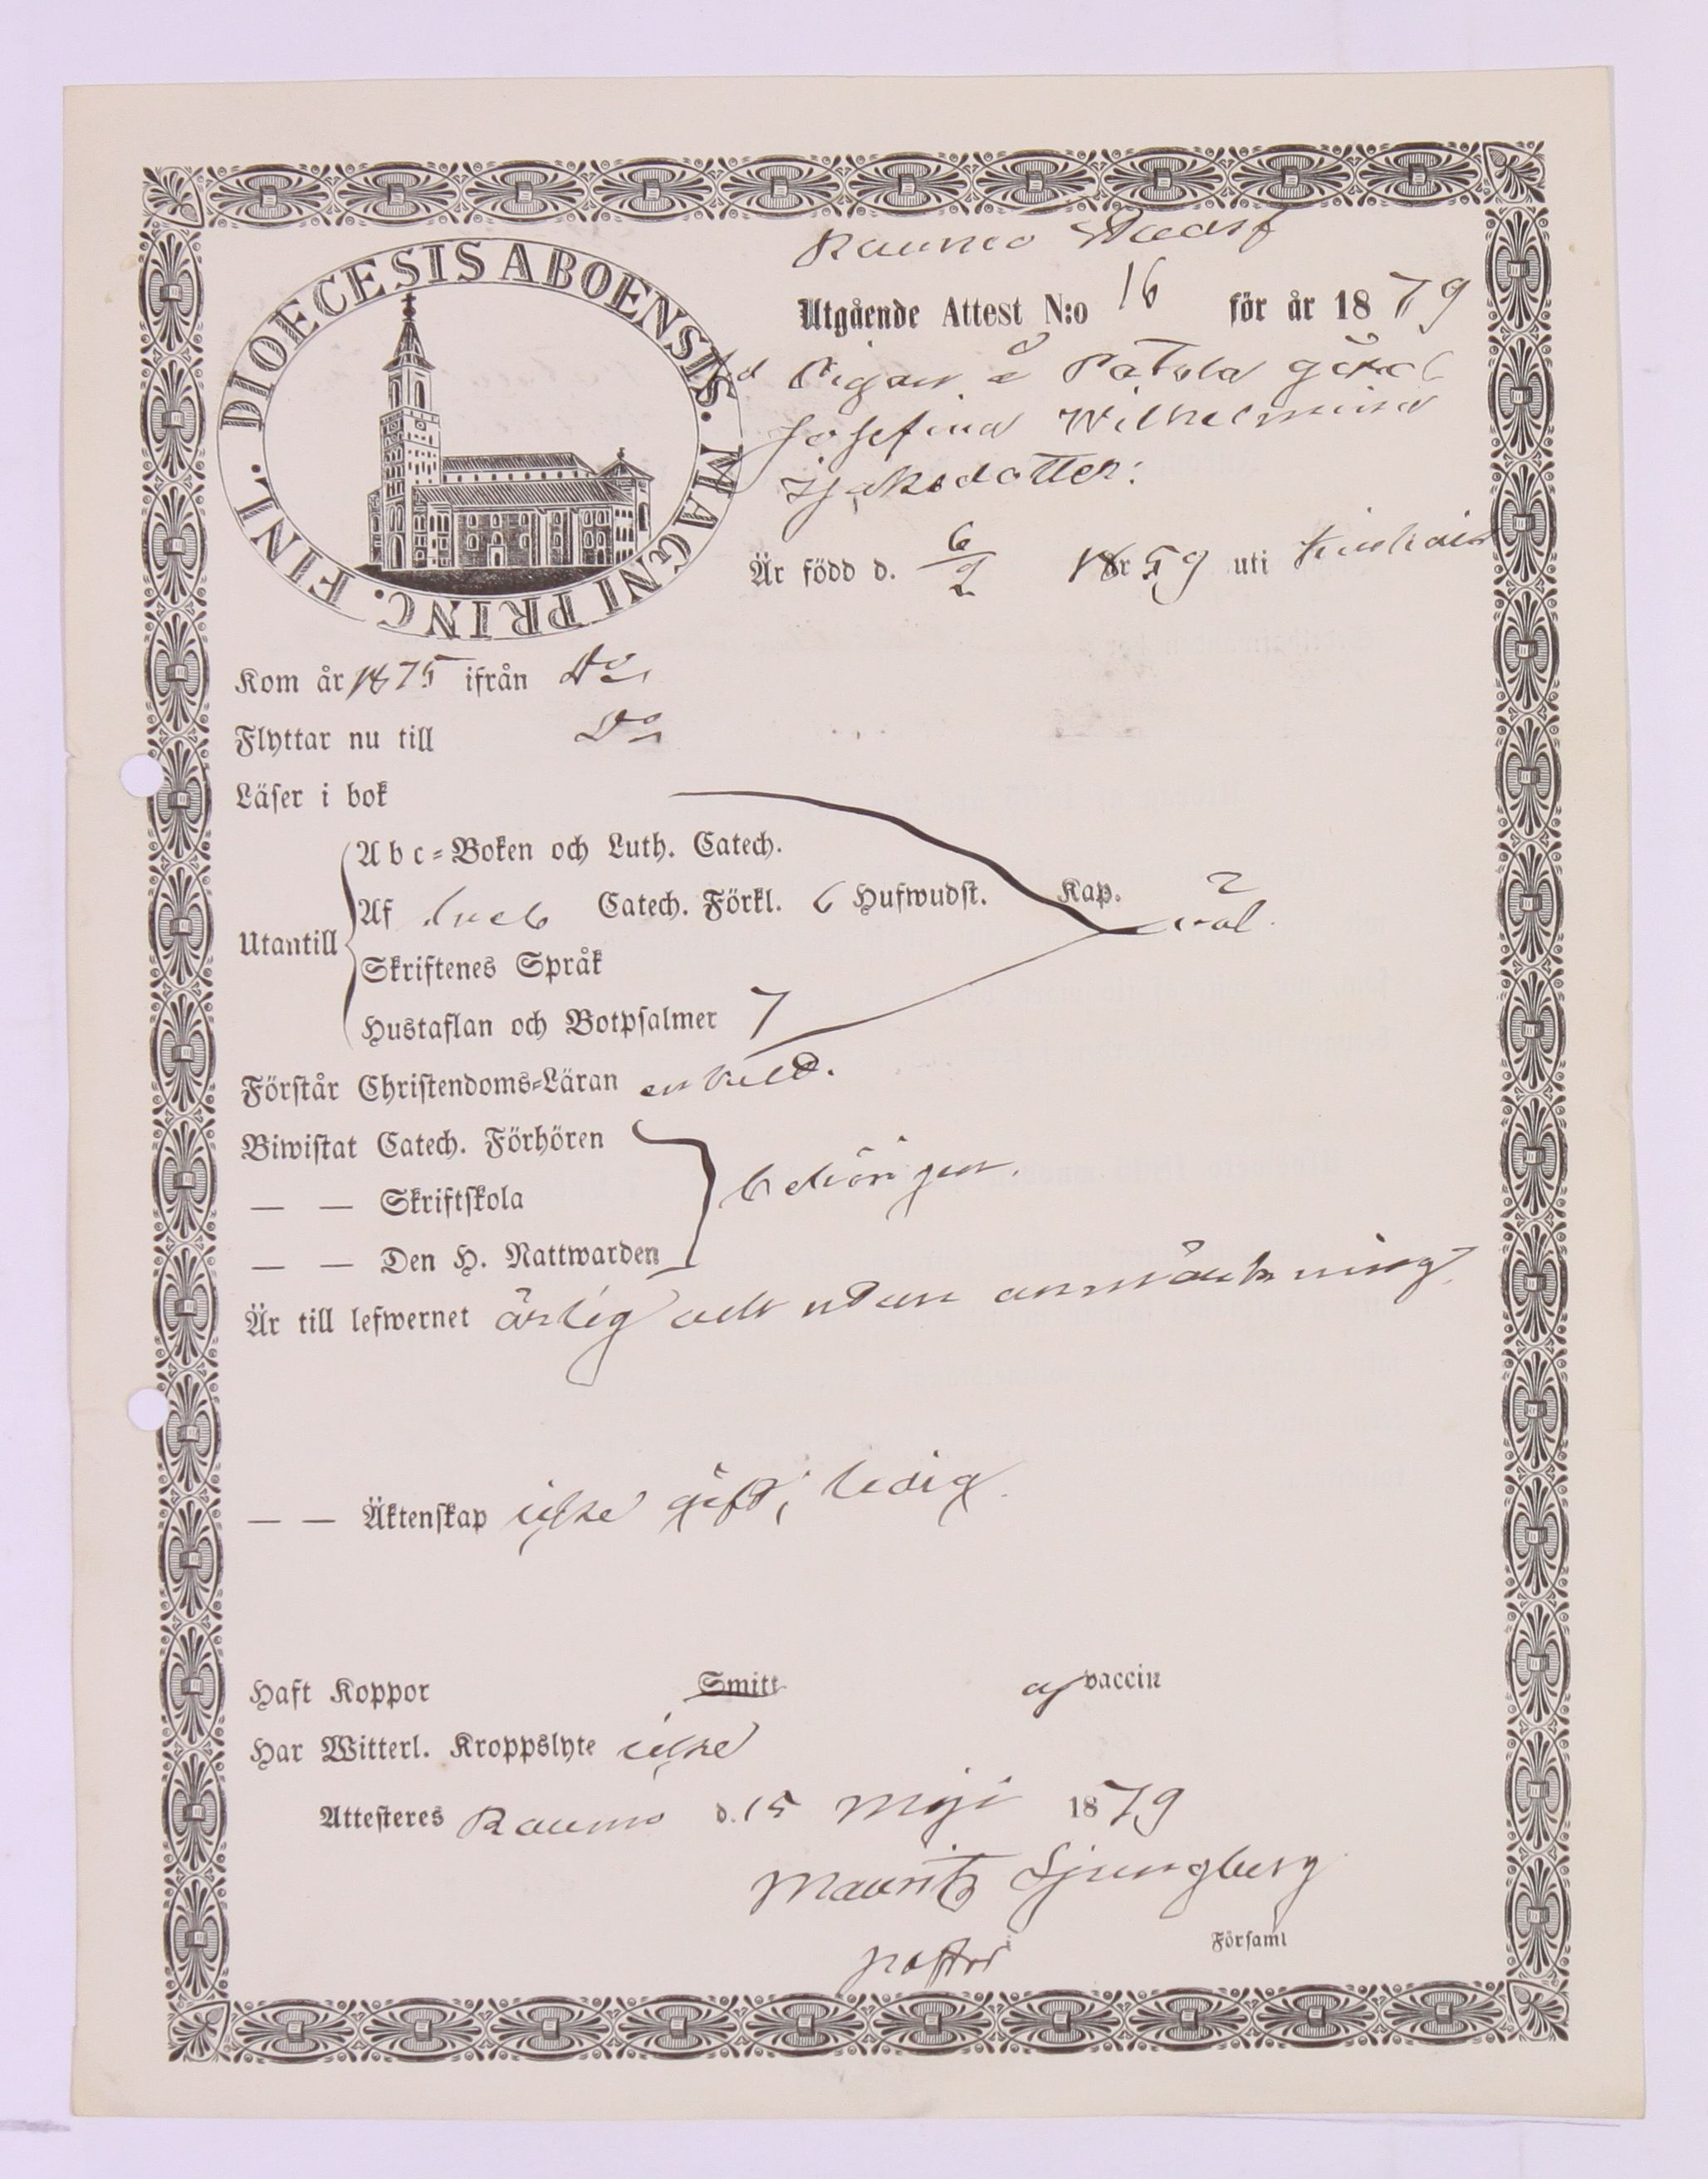 DIOECESIS ABOENSIS. MAGNI PRINC. FINL.
Raumo
Utgående Attest N:o 16 för år 1879
Pigan å gård
Josefina Wilhelmina
Isaksdotter:
Är född d. 6/2 1859 uti
Kom år 1875 ifrån Do
Flyttar nu till Do
Läser i bok
Utantill
Abc-Boken och Luth. Catech.
Af Catech. Förkl. 6 Hufwudst. Kap. 2
väl.
Skriftenes Språk
Hustaflan och Botpsalmer 7
Förstår Christendoms-Läran enkelt.
Biwistat Catech. Förhören
— — Skriftskola behörigen.
— — Den H. Nattwarden
Är till lefwernet ärlig och utan anmärkning
— — Äktenskap icke gift, ledig.
Haft Koppor Smitt af vaccin
Har Witterl. Kroppslyte icke
Attesteres Raumo d. 15 Maji 1879
Mauritz Ljungberg
pastor i Församl